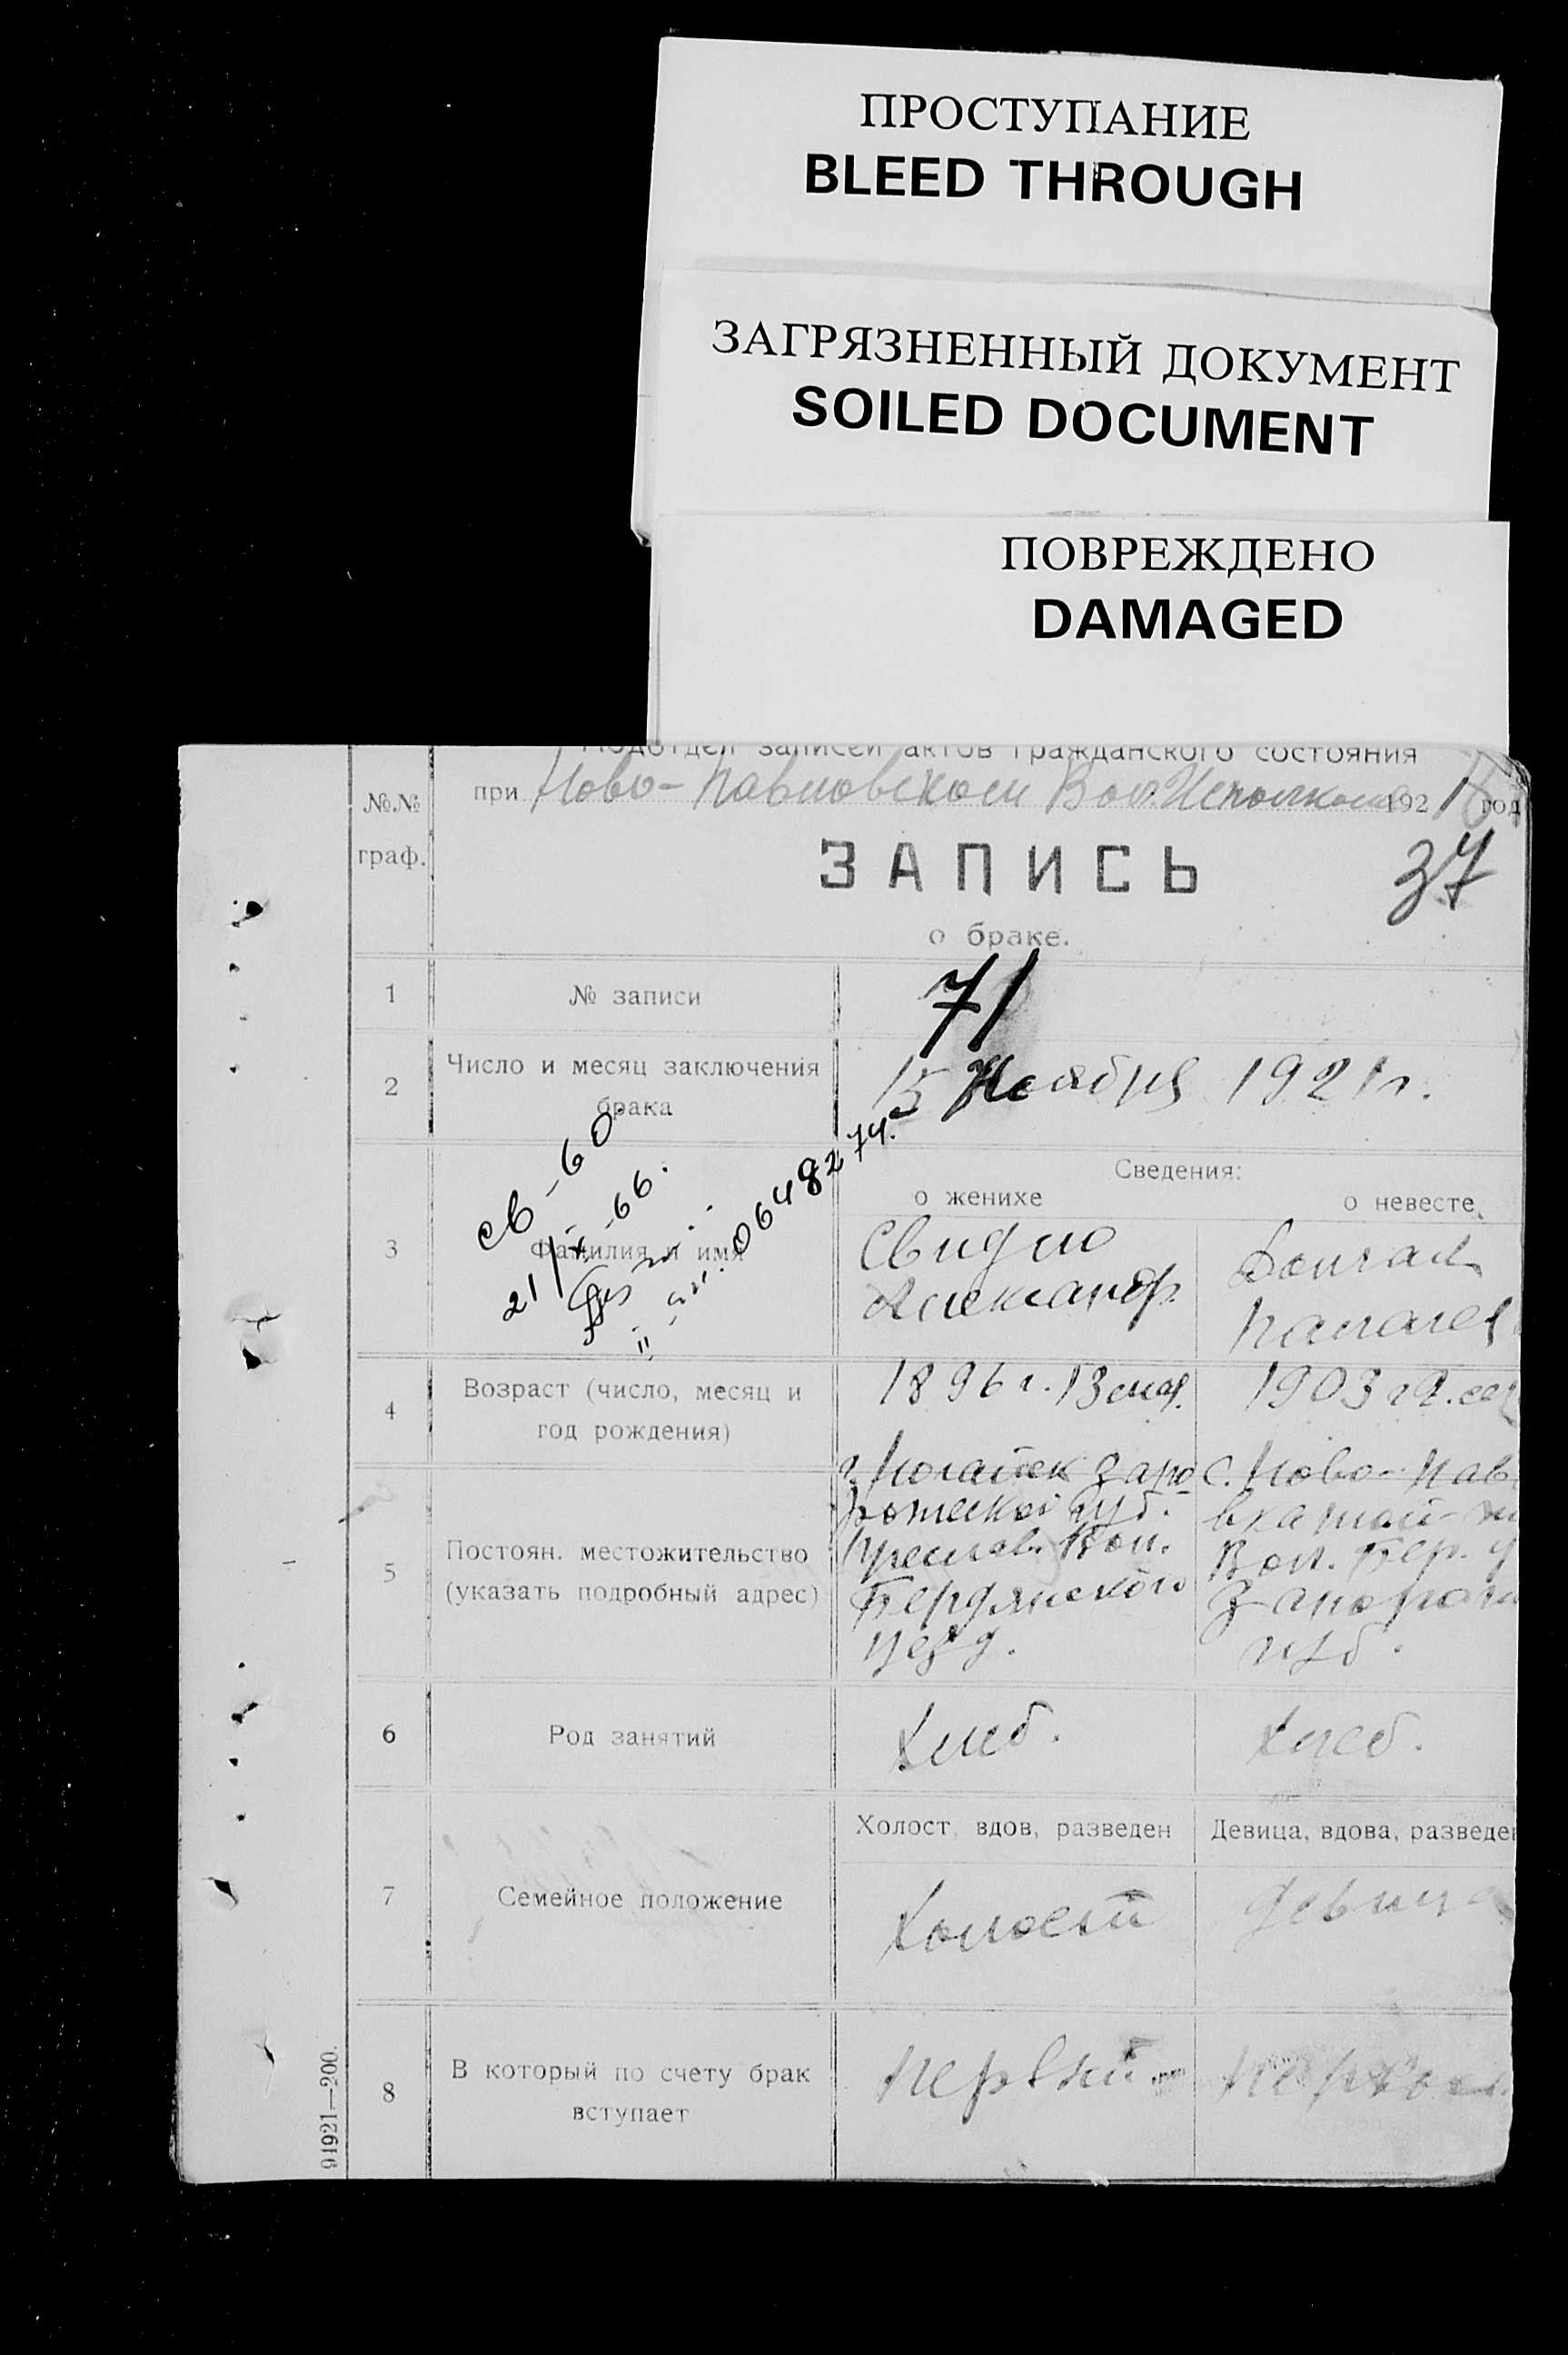 ПРОСТУПАНИЕ
BLEED THROUGH
ЗАГРЯЗНЕННЫЙ ДОКУМЕНТ
SOILED DOCUMENT
ПОВРЕЖДЕНО
DAMAGED
Подотдел записей актов гражданского состояния
при Ново-Павловском Вол. Исполкоме 1921 год
№№
граф.
ЗАПИСЬ
37
о браке.
1
№ записи
71
2
Число и месяц заключения
брака
15 Ноября 1921 г.
Сведения:
о женихе
о невесте
3
Фамилия и имя
св-60
21/X-66.
0648274.
Свидло
Александр.
4
Возраст (число, месяц и
год рождения)
1896 г. 13
1903 г 9.
5
Постоян. местожительство
(указать подробный адрес)
г. Ногайск Запо
рожской губ.
Вол.
Бердянского
уезд.
с. Ново-Пав
Вол. Бер. у
Запорож
губ.
6
Род занятий
Хлеб.
Хлеб.
7
Семейное положение
Холост, вдов, разведен
Девица, вдова, разведен
Холост
Девица
8
В который по счету брак
вступает
Первый
Первый
91921—200.